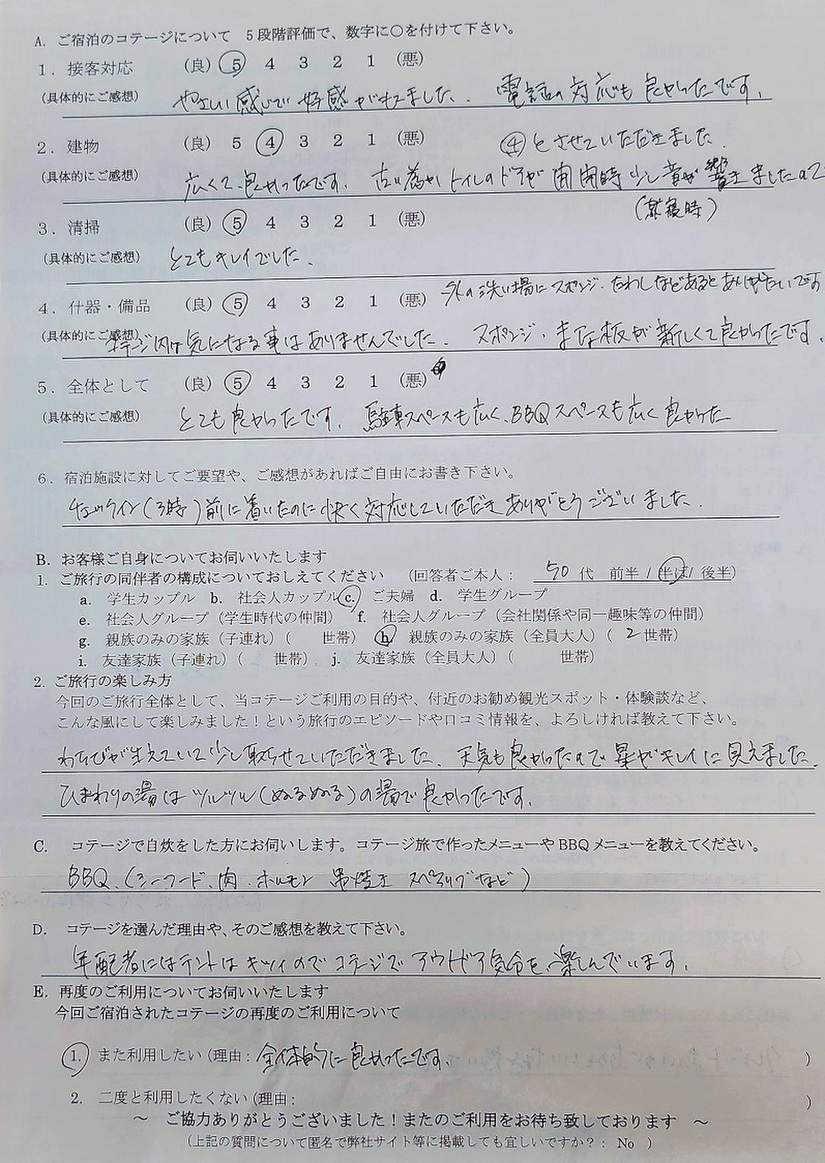 A. ご宿泊のコテージについて 5段階評価で、数字に○を付けて下さい。
1. 接客対応 (良) ⑤ 4 3 2 1 (悪)
(具体的にご感想) やさしい感じで好感がもてました。電話の対応も良かったです。
2. 建物 (良) 5 ④ 3 2 1 (悪) ④とさせていただきました。
(具体的にご感想) 広くて良かったです。古い為かトイレのドアが開閉時少し音が響きましたので
(就寝時)
3. 清掃 (良) ⑤ 4 3 2 1 (悪)
(具体的にご感想) とてもキレイでした。
4. 什器・備品 (良) ⑤ 4 3 2 1 (悪) 外の洗い場にスポンジ、たわしなどあるとありがたいです
(具体的にご感想) 気になる事はありませんでした。スポンジ、まな板が新しくて良かったです。
5. 全体として (良) ⑤ 4 3 2 1 (悪)
(具体的にご感想) とても良かったです。駐車スペースも広く、BBQスペースも広く良かった
6. 宿泊施設に対してご要望や、ご感想があればご自由にお書き下さい。
チェックイン(3時)前に着いたのに快く対応していただきありがとうございました。
B. お客様ご自身についてお伺いいたします
1. ご旅行の同伴者の構成についておしえてください (回答者ご本人: 50代 前半 / 半ば / 後半)
a. 学生カップル b. 社会人カップル c. ご夫婦 d. 学生グループ
e. 社会人グループ(学生時代の仲間) f. 社会人グループ(会社関係や同一趣味等の仲間)
g. 親族のみの家族(子連れ)( 世帯) h. 親族のみの家族(全員大人)( 2世帯)
i. 友達家族(子連れ)( 世帯). j. 友達家族(全員大人)( 世帯)
2. ご旅行の楽しみ方
今回のご旅行全体として、当コテージご利用の目的や、付近のお勧め観光スポット・体験談など、
こんな風にして楽しみました!という旅行のエピソードや口コミ情報を、よろしければ教えて下さい。
わらびが生えていて少し取らせていただきました。天気も良かったので星がキレイに見えました。
ひまわりの湯はツルツル(ぬるぬる)の湯で良かったです。
C. コテージで自炊をした方にお伺いします。コテージ旅で作ったメニューやBBQメニューを教えてください。
BBQ、(シーフード、肉、ホルモン スペアリブなど)
D. コテージを選んだ理由や、そのご感想を教えて下さい。
年配者にはテントはキツイのでコテージでアウトドア気分を楽しんでいます。
E. 再度のご利用についてお伺いいたします
今回ご宿泊されたコテージの再度のご利用について
①. また利用したい(理由: 全体的に良かったです )
2. 二度と利用したくない(理由: )
~ ご協力ありがとうございました!またのご利用をお待ち致しております ~
(上記の質問について匿名で弊社サイト等に掲載しても宜しいですか?: No )